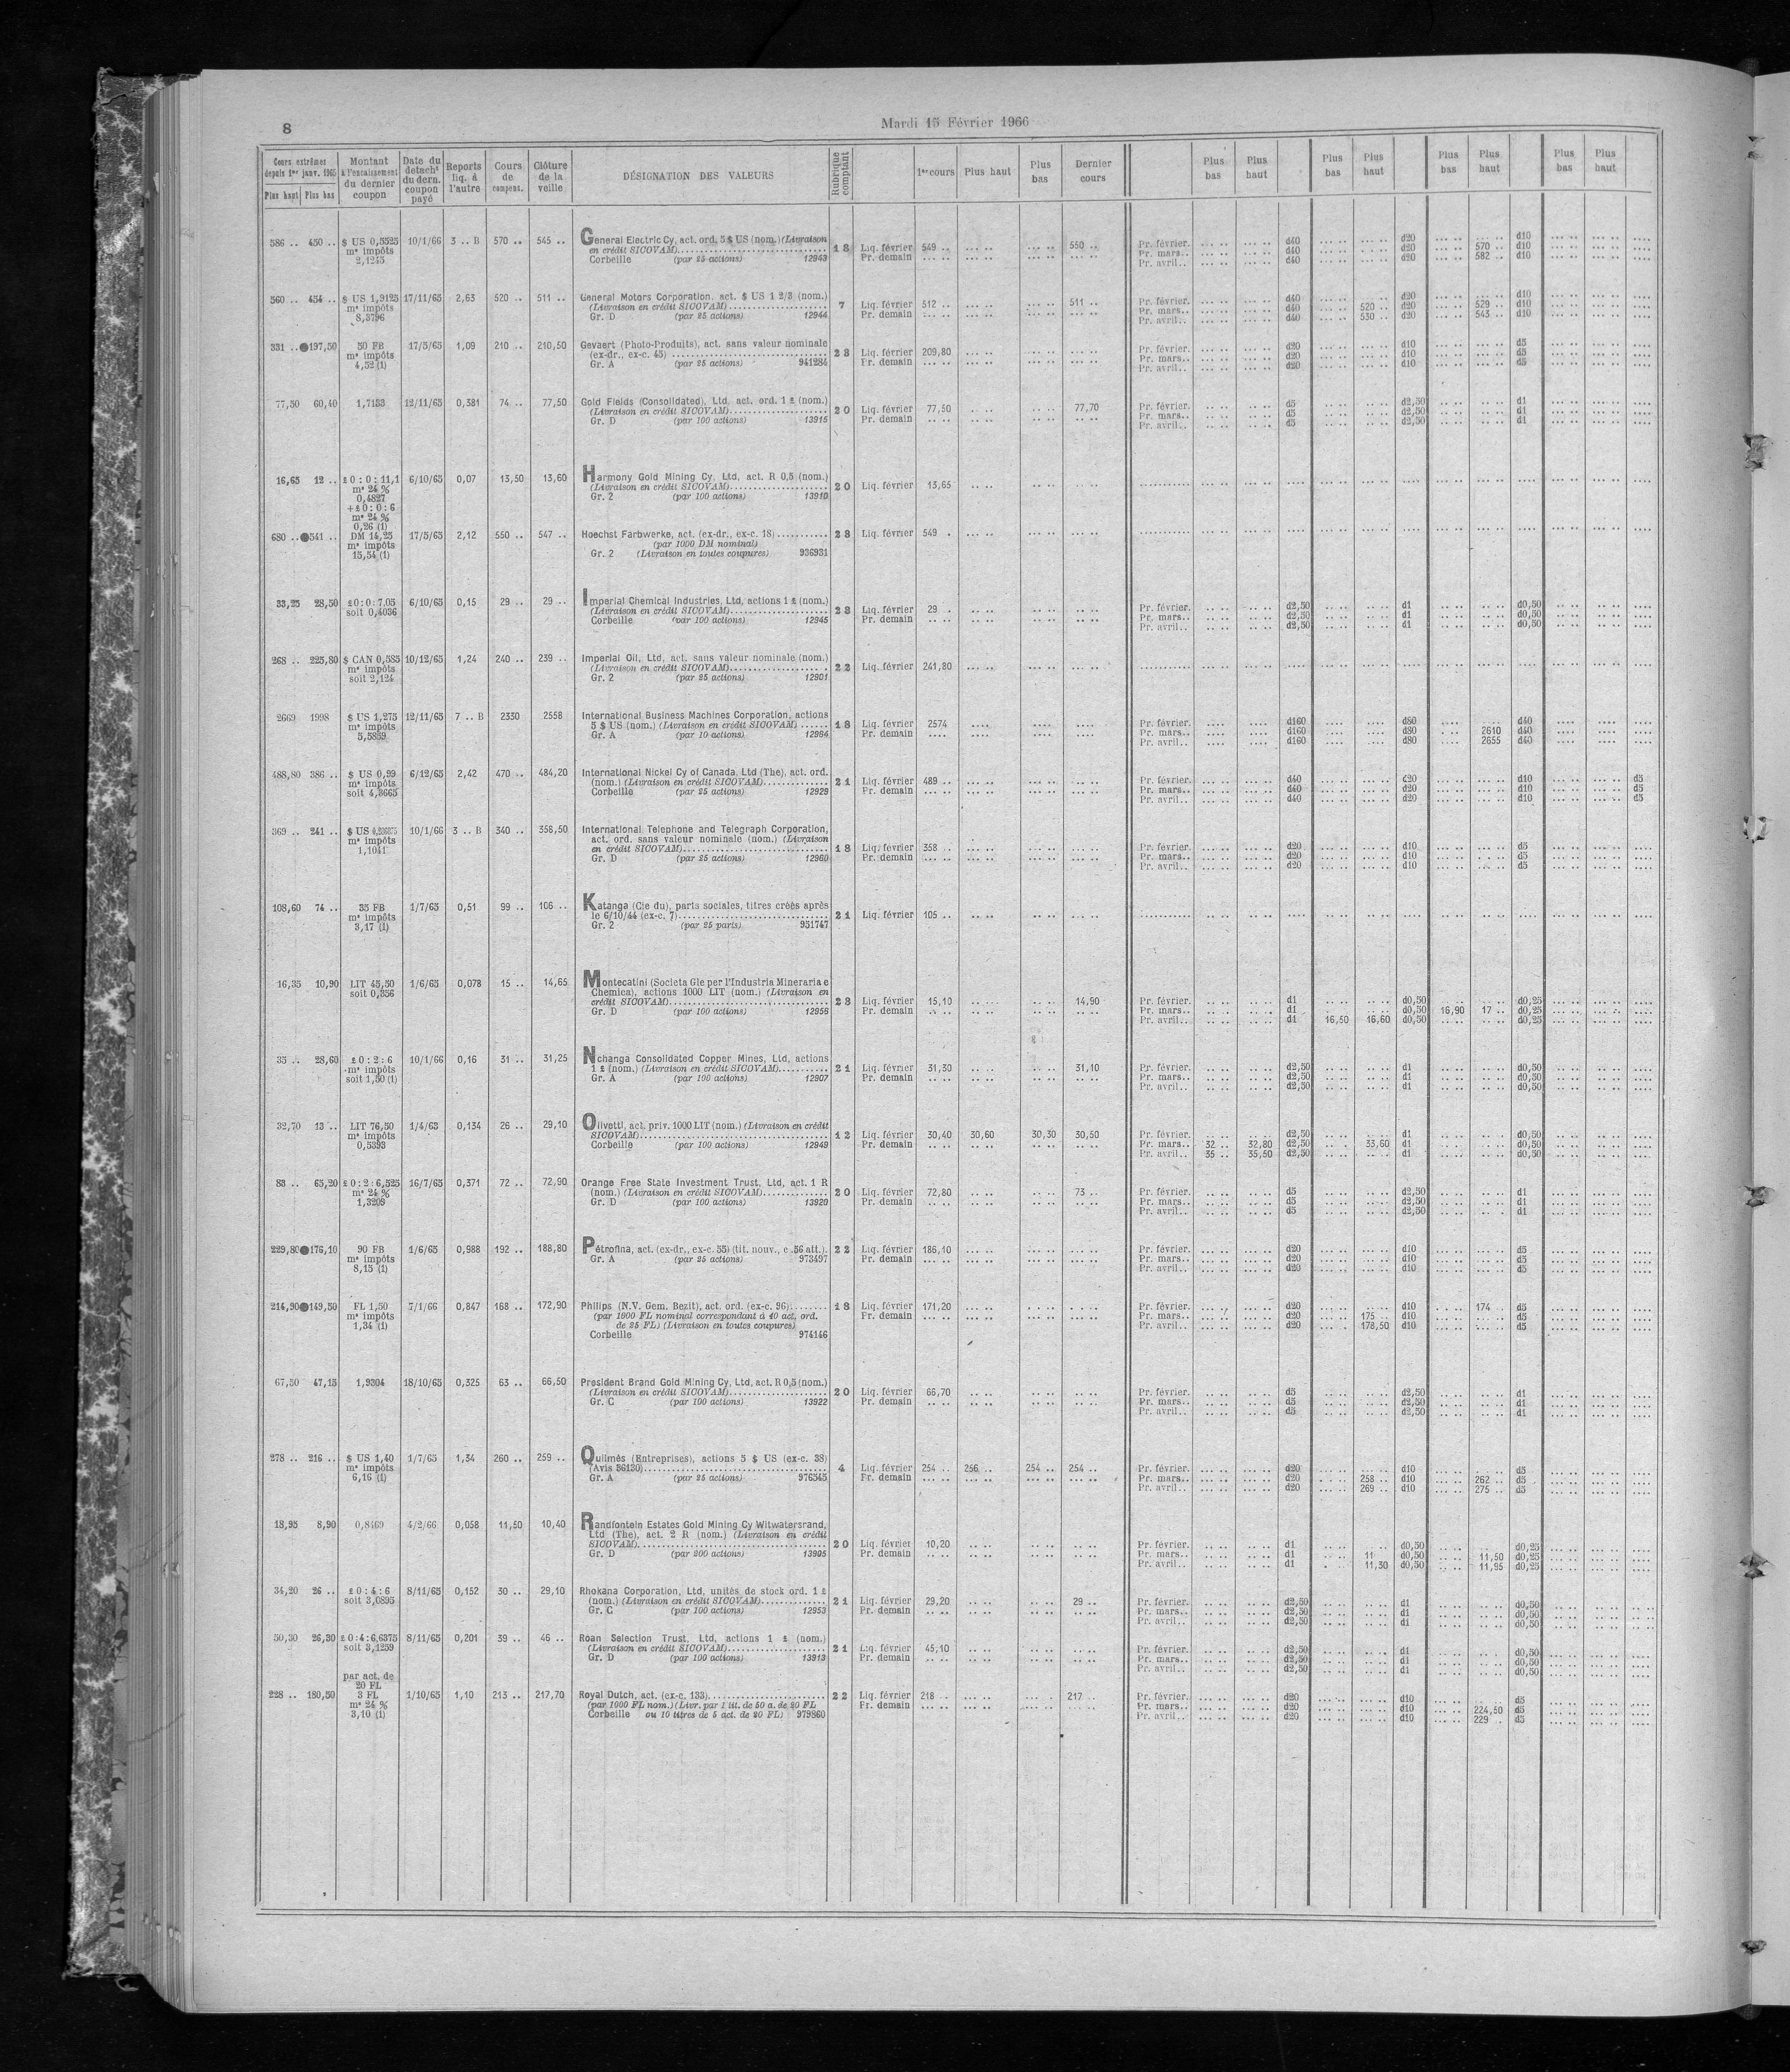 8
Mardi 15 Février 1966
Cours extrêmes depuis 1er janv. 1965 Plus haut Plus bas | Montant à l'encaissement du dernier coupon | Date du détacht du dern. coupon payé | Reports liq. à l'autre | Cours de compens. | Clôture de la veille | DÉSIGNATION DES VALEURS | Rubrique comptant | 1er cours | Plus haut | Plus bas | Dernier cours | Plus bas | Plus haut | Plus bas | Plus haut | Plus bas | Plus haut | Plus bas | Plus haut
586 .. 450 .. $ US 0,5525 10/1/66 3 .. B 570 .. 545 .. General Electric Cy, act. ord. 5 $ US (nom.) (Livraison
m* impôts en crédit SICOVAM) 18 Liq. février 549 .. 550 .. Pr. février. d40 d20 d10
2,1245 Corbeille (par 25 actions) 12943 Pr. demain Pr. mars.. d40 d20 570 .. d10
Pr. avril.. d40 d20 582 .. d10
560 .. 454 .. $ US 1,9125 17/11/65 2,63 520 .. 511 .. General Motors Corporation, act. $ US 1 2/3 (nom.)
m* impôts (Livraison en crédit SICOVAM) 7 Liq. février 512 .. 511 .. Pr. février. d40 d20 d10
8,3796 Gr. D (par 25 actions) 12944 Pr. demain Pr. mars.. d40 520 .. d20 529 .. d10
Pr. avril.. d40 530 .. d20 543 .. d10
331 .. ●197,50 50 FB 17/5/65 1,09 210 .. 210,50 Gevaert (Photo-Produits), act. sans valeur nominale
m* impôts (ex-dr., ex-c. 45) 28 Liq. février 209,80 Pr. février. d20 d10 d5
4,52 (1) Gr. A (par 25 actions) 941284 Pr. demain Pr. mars.. d20 d10 d5
Pr. avril.. d20 d10 d5
77,50 60,40 1,7133 12/11/65 0,381 74 .. 77,50 Gold Fields (Consolidated), Ltd, act. ord. 1 £ (nom.)
(Livraison en crédit SICOVAM) 20 Liq. février 77,50 77,70 Pr. février. d5 d2,50 d1
Gr. D (par 100 actions) 13915 Pr. demain Pr. mars.. d5 d2,50 d1
Pr. avril.. d5 d2,50 d1
16,65 12 .. £ 0 : 0 : 11,1 6/10/65 0,07 13,50 13,60 Harmony Gold Mining Cy, Ltd, act. R 0,5 (nom.)
m* 24 % (Livraison en crédit SICOVAM) 20 Liq. février 13,65
0,4827 Gr. 2 (par 100 actions) 13910
+ £ 0 : 0 : 6
m* 24 %
0,26 (1)
680 .. ●541 .. DM 14,25 17/5/65 2,12 550 .. 547 .. Hoechst Farbwerke, act. (ex-dr., ex-c. 18) 28 Liq. février 549 .
m* impôts (par 1000 DM nominal)
15,54 (1) Gr. 2 (Livraison en toutes coupures) 936931
33,25 28,50 £ 0 : 0 : 7,05 6/10/65 0,15 29 .. 29 .. Imperial Chemical Industries, Ltd, actions 1 £ (nom.)
soit 0,4036 (Livraison en crédit SICOVAM) 28 Liq. février 29 . Pr. février. d2,50 d1 d0,50
Corbeille (par 100 actions) 12945 Pr. demain Pr. mars.. d2,50 d1 d0,50
Pr. avril.. d2,50 d1 d0,50
268 .. 225,80 $ CAN 0,585 10/12/65 1,24 240 .. 239 .. Imperial Oil, Ltd, act. sans valeur nominale (nom.)
m* impôts (Livraison en crédit SICOVAM) 22 Liq. février 241,80
soit 2,124 Gr. 2 (par 25 actions) 12901
2669 1998 $ US 1,275 12/11/65 7 .. B 2330 2558 International Business Machines Corporation, actions
m* impôts 5 $ US (nom.) (Livraison en crédit SICOVAM) 18 Liq. février 2574 Pr. février. d160 d80 d40
5,5869 Gr. A (par 10 actions) 12964 Pr. demain Pr. mars.. d160 d80 2610 d40
Pr. avril.. d160 d80 2655 d40
488,80 386 .. $ US 0,99 6/12/65 2,42 470 .. 484,20 International Nickel Cy of Canada, Ltd (The), act. ord.
m* impôts (nom.) (Livraison en crédit SICOVAM) 21 Liq. février 489 .. Pr. février. d40 d20 d10 d5
soit 4,3665 Corbeille (par 25 actions) 12929 Pr. demain Pr. mars.. d40 d20 d10 d5
Pr. avril.. d40 d20 d10 d5
369 .. 241 .. $ US 10/1/66 3 .. B 340 .. 358,50 International Telephone and Telegraph Corporation,
m* impôts act. ord. sans valeur nominale (nom.) (Livraison
1,1041 en crédit SICOVAM) 18 Liq. février 358 .. Pr. février. d20 d10 d5
Gr. D (par 25 actions) 12960 Pr. demain Pr. mars.. d20 d10 d5
Pr. avril.. d20 d10 d5
108,60 74 .. 35 FB 1/7/65 0,51 99 .. 106 .. Katanga (Cie du), parts sociales, titres créés après
m* impôts le 6/10/44 (ex-c. 7) 21 Liq. février 105 ..
3,17 (1) Gr. 2 (par 25 parts) 951747
16,35 10,90 LIT 45,50 1/6/65 0,078 15 .. 14,65 Montecatini (Societa Gle per l'Industria Mineraria e
soit 0,356 Chemica), actions 1000 LIT (nom.) (Livraison en
crédit SICOVAM) 28 Liq. février 15,10 14,90 Pr. février. d1 d0,50 d0,25
Gr. D (par 100 actions) 12956 Pr. demain Pr. mars.. d1 d0,50 16,90 17 .. d0,25
Pr. avril.. d1 16,50 16,60 d0,50 d0,25
35 .. 28,60 £ 0 : 2 : 6 10/1/66 0,16 31 .. 31,25 Nchanga Consolidated Copper Mines, Ltd, actions
m* impôts 1 £ (nom.) (Livraison en crédit SICOVAM) 21 Liq. février 31,30 31,10 Pr. février. d2,50 d1 d0,50
soit 1,50 (1) Gr. A (par 100 actions) 12907 Pr. demain Pr. mars.. d2,50 d1 d0,50
Pr. avril.. d2,50 d1 d0,50
32,70 13 .. LIT 76,50 1/4/63 0,134 26 .. 29,10 Olivetti, act. priv. 1000 LIT (nom.) (Livraison en crédit
m* impôts SICOVAM) 12 Liq. février 30,40 30,60 30,30 30,50 Pr. février. d2,50 d1 d0,50
0,5393 Corbeille (par 100 actions) 12949 Pr. demain Pr. mars.. 32 .. 32,80 d2,50 33,60 d1 d0,50
Pr. avril.. 35 .. 35,50 d2,50 d1 d0,50
83 .. 65,20 £ 0 : 2 : 6,525 16/7/65 0,371 72 .. 72,90 Orange Free State Investment Trust, Ltd, act. 1 R
m* 24 % (nom.) (Livraison en crédit SICOVAM) 20 Liq. février 72,80 73 .. Pr. février. d5 d2,50 d1
1,3208 Gr. D (par 100 actions) 13920 Pr. demain Pr. mars.. d5 d2,50 d1
Pr. avril.. d5 d2,50 d1
229,80●176,10 90 FB 1/6/65 0,988 192 .. 188,80 Pétrofina, act. (ex-dr., ex-c. 55) (tit. nouv., c .56 att.). 22 Liq. février 186,10 Pr. février. d20 d10 d5
m* impôts Gr. A (par 25 actions) 973497 Pr. demain Pr. mars.. d20 d10 d5
8,15 (1) Pr. avril.. d20 d10 d5
214,90●149,50 FL 1,50 7/1/66 0,847 168 .. 172,90 Philips (N.V. Gem. Bezit), act. ord. (ex-c. 96) 18 Liq. février 171,20 Pr. février. d20 d10 174 .. d5
m* impôts (par 1000 FL nominal correspondant à 40 act. ord. Pr. demain Pr. mars.. d20 175 .. d10 d5
1,34 (1) de 25 FL) (Livraison en toutes coupures) Pr. avril.. d20 178,50 d10 d5
Corbeille 974146
67,50 47,15 1,9304 18/10/65 0,325 63 .. 66,50 President Brand Gold Mining Cy, Ltd, act. R 0,5 (nom.)
(Livraison en crédit SICOVAM) 20 Liq. février 66,70 Pr. février. d5 d2,50 d1
Gr. C (par 100 actions) 13922 Pr. demain Pr. mars.. d5 d2,50 d1
Pr. avril.. d5 d2,50 d1
278 .. 216 .. $ US 1,40 1/7/65 1,34 260 .. 259 .. Quilmès (Entreprises), actions 5 $ US (ex-c. 38)
m* impôts (Avis 36130) 4 Liq. février 254 .. 256 .. 254 .. 254 .. Pr. février. d20 d10 d5
6,16 (1) Gr. A (par 25 actions) 976545 Pr. demain Pr. mars.. d20 258 .. d10 262 .. d5
Pr. avril.. d20 269 .. d10 275 .. d5
18,95 8,90 0,8469 4/2/66 0,058 11,50 10,40 Randfontein Estates Gold Mining Cy Witwatersrand,
Ltd (The), act. 2 R (nom.) (Livraison en crédit
SICOVAM) 20 Liq. février 10,20 Pr. février. d1 d0,50 d0,25
Gr. D (par 200 actions) 13905 Pr. demain Pr. mars.. d1 11 d0,50 11,50 d0,25
Pr. avril.. d1 11,30 d0,50 11,95 d0,25
34,20 26 .. £ 0 : 4 : 6 8/11/65 0,152 30 .. 29,10 Rhokana Corporation, Ltd, unités de stock ord. 1 £
soit 3,0895 (nom.) (Livraison en crédit SICOVAM) 21 Liq. février 29,20 29 .. Pr. février. d2,50 d1 d0,50
Gr. C (par 100 actions) 12953 Pr. demain Pr. mars.. d2,50 d1 d0,50
Pr. avril.. d2,50 d1 d0,50
50,30 26,30 £ 0 : 4 : 6,6375 8/11/65 0,201 39 .. 46 .. Roan Selection Trust, Ltd, actions 1 £ (nom.)
soit 3,1259 (Livraison en crédit SICOVAM) 21 Liq. février 45,10 Pr. février. d2,50 d1 d0,50
Gr. D (par 100 actions) 13913 Pr. demain Pr. mars.. d2,50 d1 d0,50
Pr. avril.. d2,50 d1 d0,50
par act. de
20 FL
228 .. 180,50 3 FL 1/10/65 1,10 213 .. 217,70 Royal Dutch, act. (ex-c. 133) 22 Liq. février 218 .. 217 .. Pr. février. d20 d10 d5
m* 24 % (par 1000 FL nom.) (Livr. par 1 tit. de 50 a. de 20 FL Pr. demain Pr. mars.. d20 d10 224,50 d5
3,10 (1) Corbeille ou 10 titres de 5 act. de 20 FL) 979860 Pr. avril.. d20 d10 229 .. d5